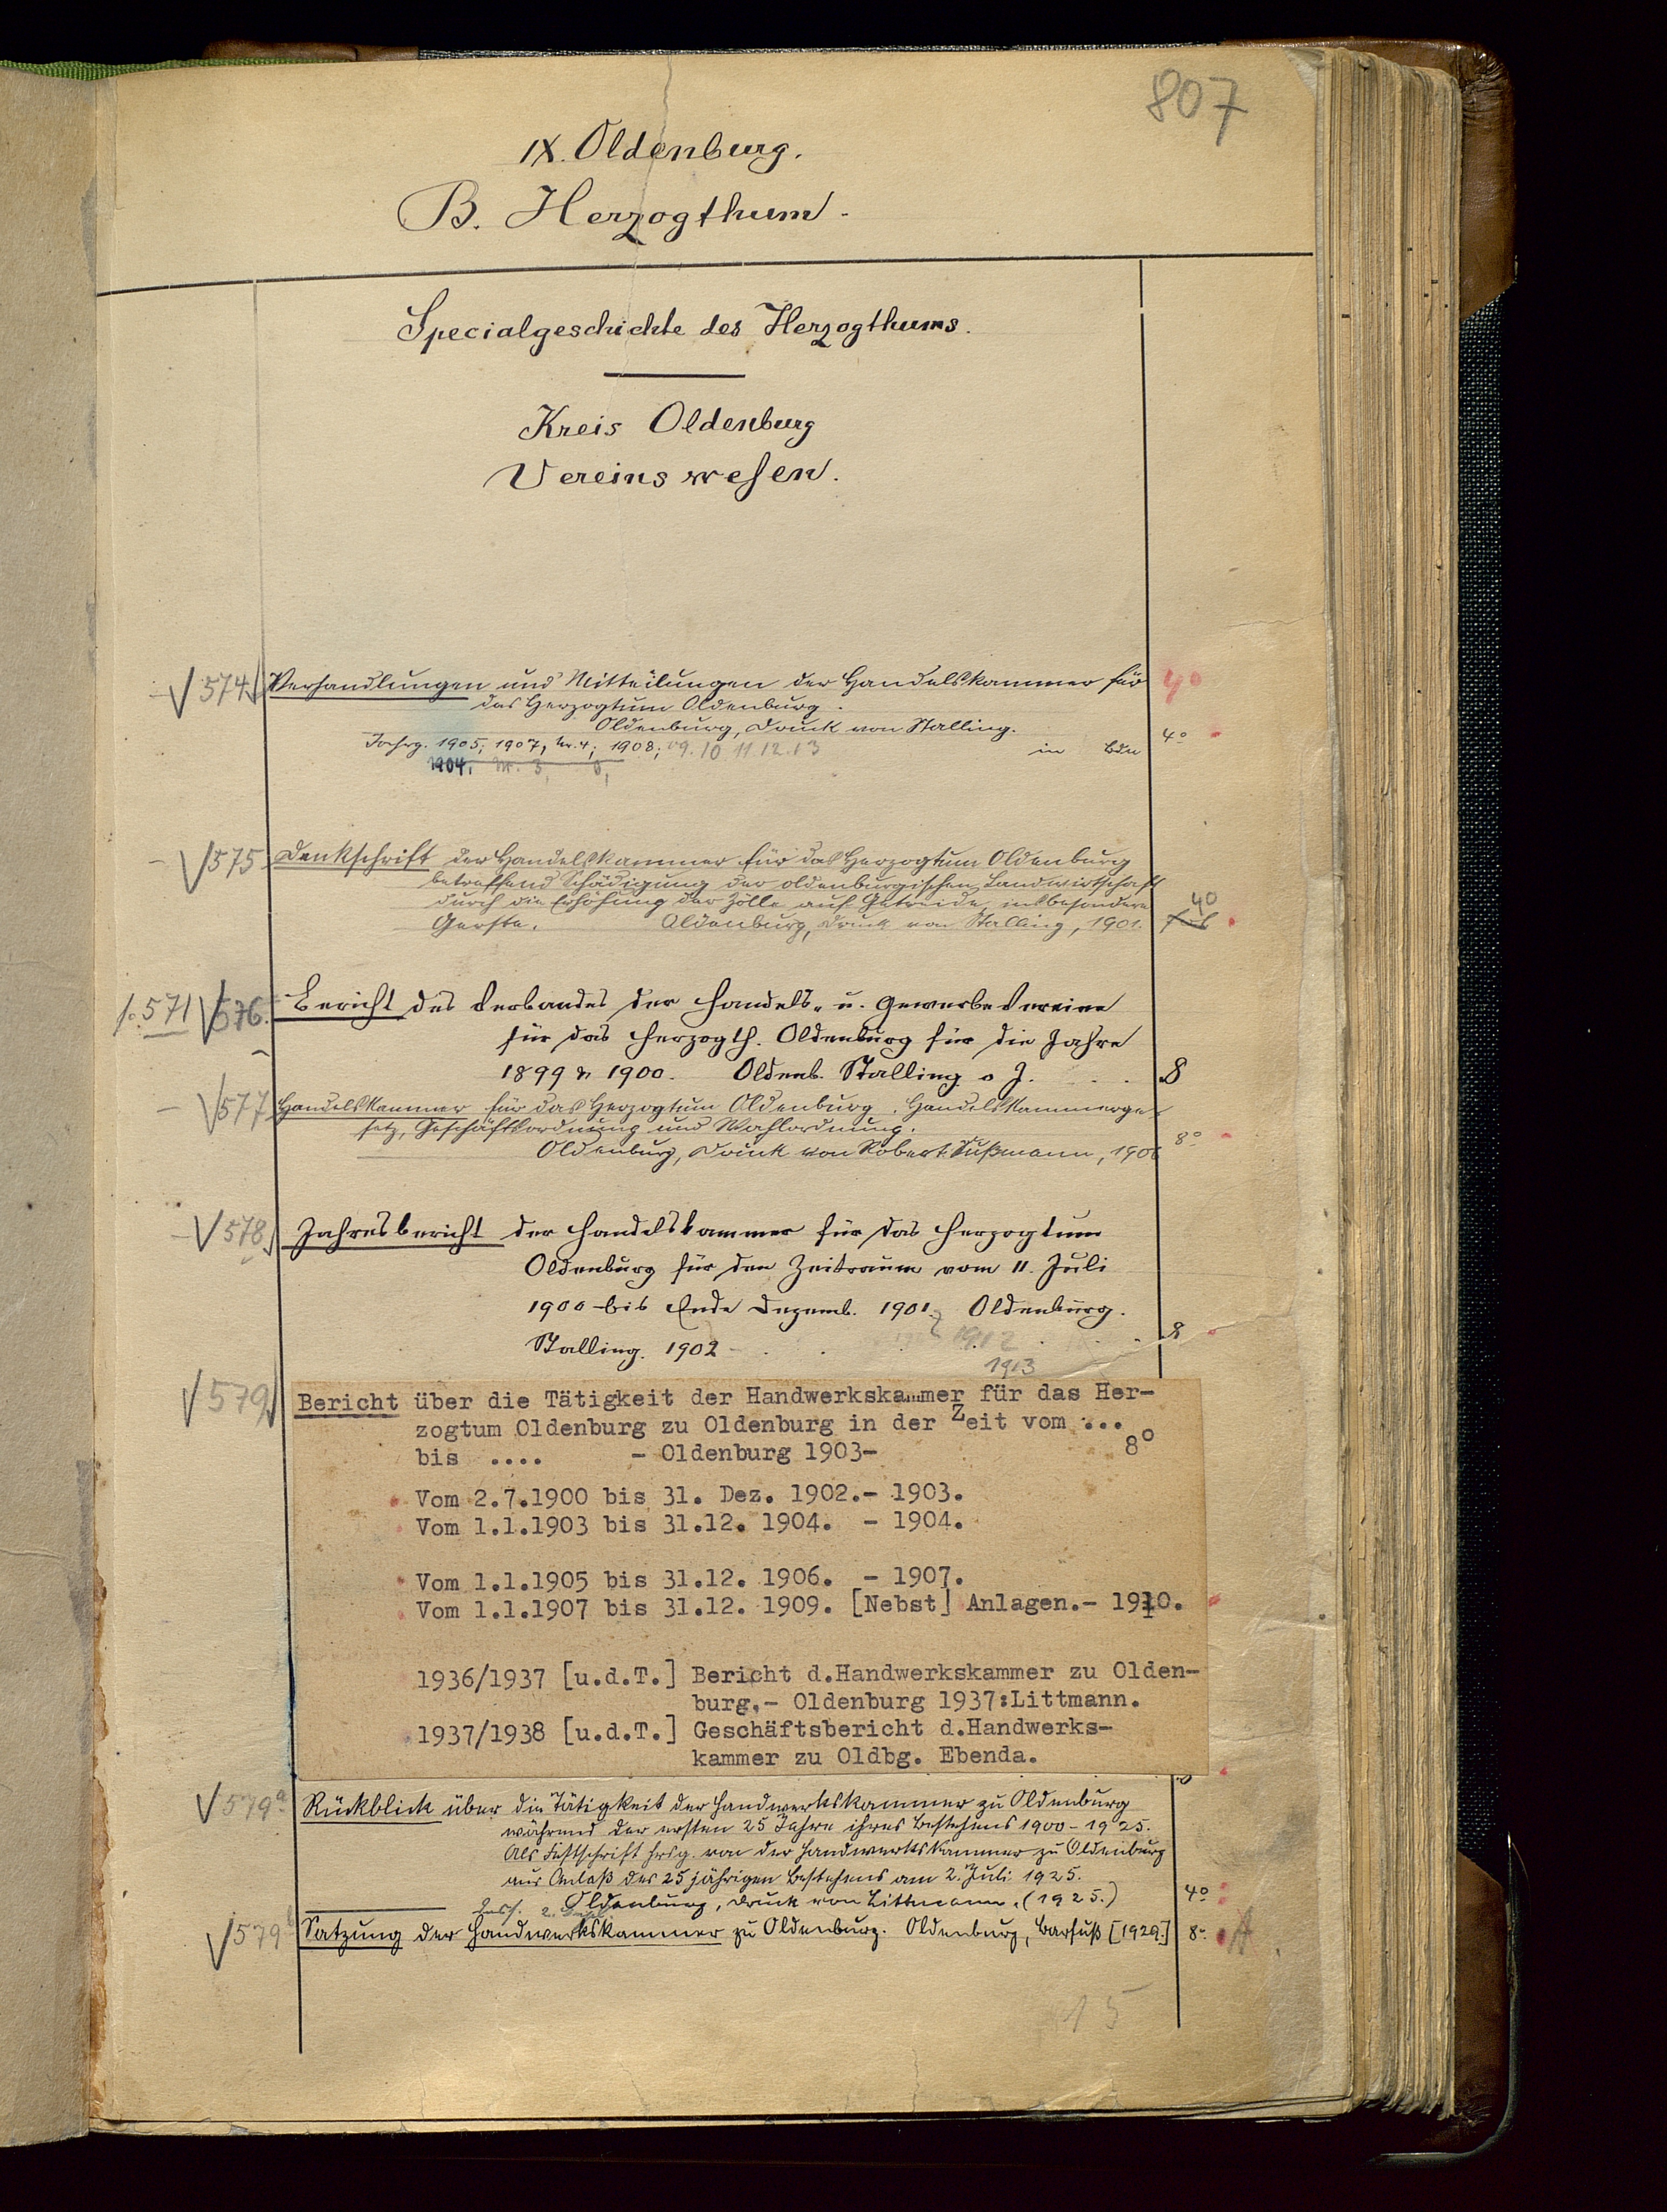 807
IX. Oldenburg.
B. Herzogthum.
Specialgeschichte des Herzogthums.
Kreis Oldenburg
Vereinswesen.
574 Verhandlungen und Mitteilungen der Handelskammer für 4°
das Herzogtum Oldenburg.
Oldenburg, Druck von Stalling.
Jahrg. 1905; 1907, Nr. 4; 1908; 09. 10 11 12. 13 in Bdn 4°
1904, Nr. 3,
575 Denkschrift der Handelskammer für das Herzogtum Oldenburg
betreffend Schädigung der oldenburgischen Landwirtschaft
durch die Erhöhung der Zölle auf Getreide, insbesondere 4°
Gerste. Oldenburg, Druck von Stalling, 1901.
571 576. Bericht des Verbandes der Handels- u. Gewerbe Vereine
für das Herzogth. Oldenburg für die Jahre
1899 & 1900. Oldenb. Stalling o J. . . . 8
577 Handelskammer für das Herzogtum Oldenburg. Handelskammerge-
setz, Geschäftsordnung und Wahlordnung.
Oldenburg, Druck von Robert Sußmann, 8°
578 Jahresbericht der Handelskammer für das Herzogtum
Oldenburg für den Zeitraum vom 11. Juli
1900 bis Ende Dezemb. 1901. Oldenburg.
Stalling. 1902 - . . . 1912 . . . 8
1913
579 Bericht über die Tätigkeit der Handwerkskammer für das Her-
zogtum Oldenburg zu Oldenburg in der Zeit vom ...
bis .... - Oldenburg 1903- 8°
Vom 2.7.1900 bis 31. Dez. 1902.- 1903.
Vom 1.1.1903 bis 31.12. 1904. - 1904.
Vom 1.1.1905 bis 31.12. 1906. - 1907.
Vom 1.1.1907 bis 31.12. 1909. [Nebst] Anlagen.- 1910.
1936/1937 [u.d.T.] Bericht d.Handwerkskammer zu Olden-
burg.- Oldenburg 1937:Littmann.
1937/1938 [u.d.T.] Geschäftsbericht d.Handwerks-
kammer zu Oldbg. Ebenda.
579a Rückblick über die Tätigkeit der Handwerkskammer zu Oldenburg
während der ersten 25 Jahre ihres Bestehens 1900-1925.
Als Festschrift hrsg. von der Handwerkskammer zu Oldenburg
aus Anlaß des 25jährigen Bestehens am 2. Juli 1925.
Oldenburg, Druck von Littmann. (1925.) 4°
579b Satzung der Handwerkskammer zu Oldenburg. Oldenburg, Barfuß [1929.] 8°
15